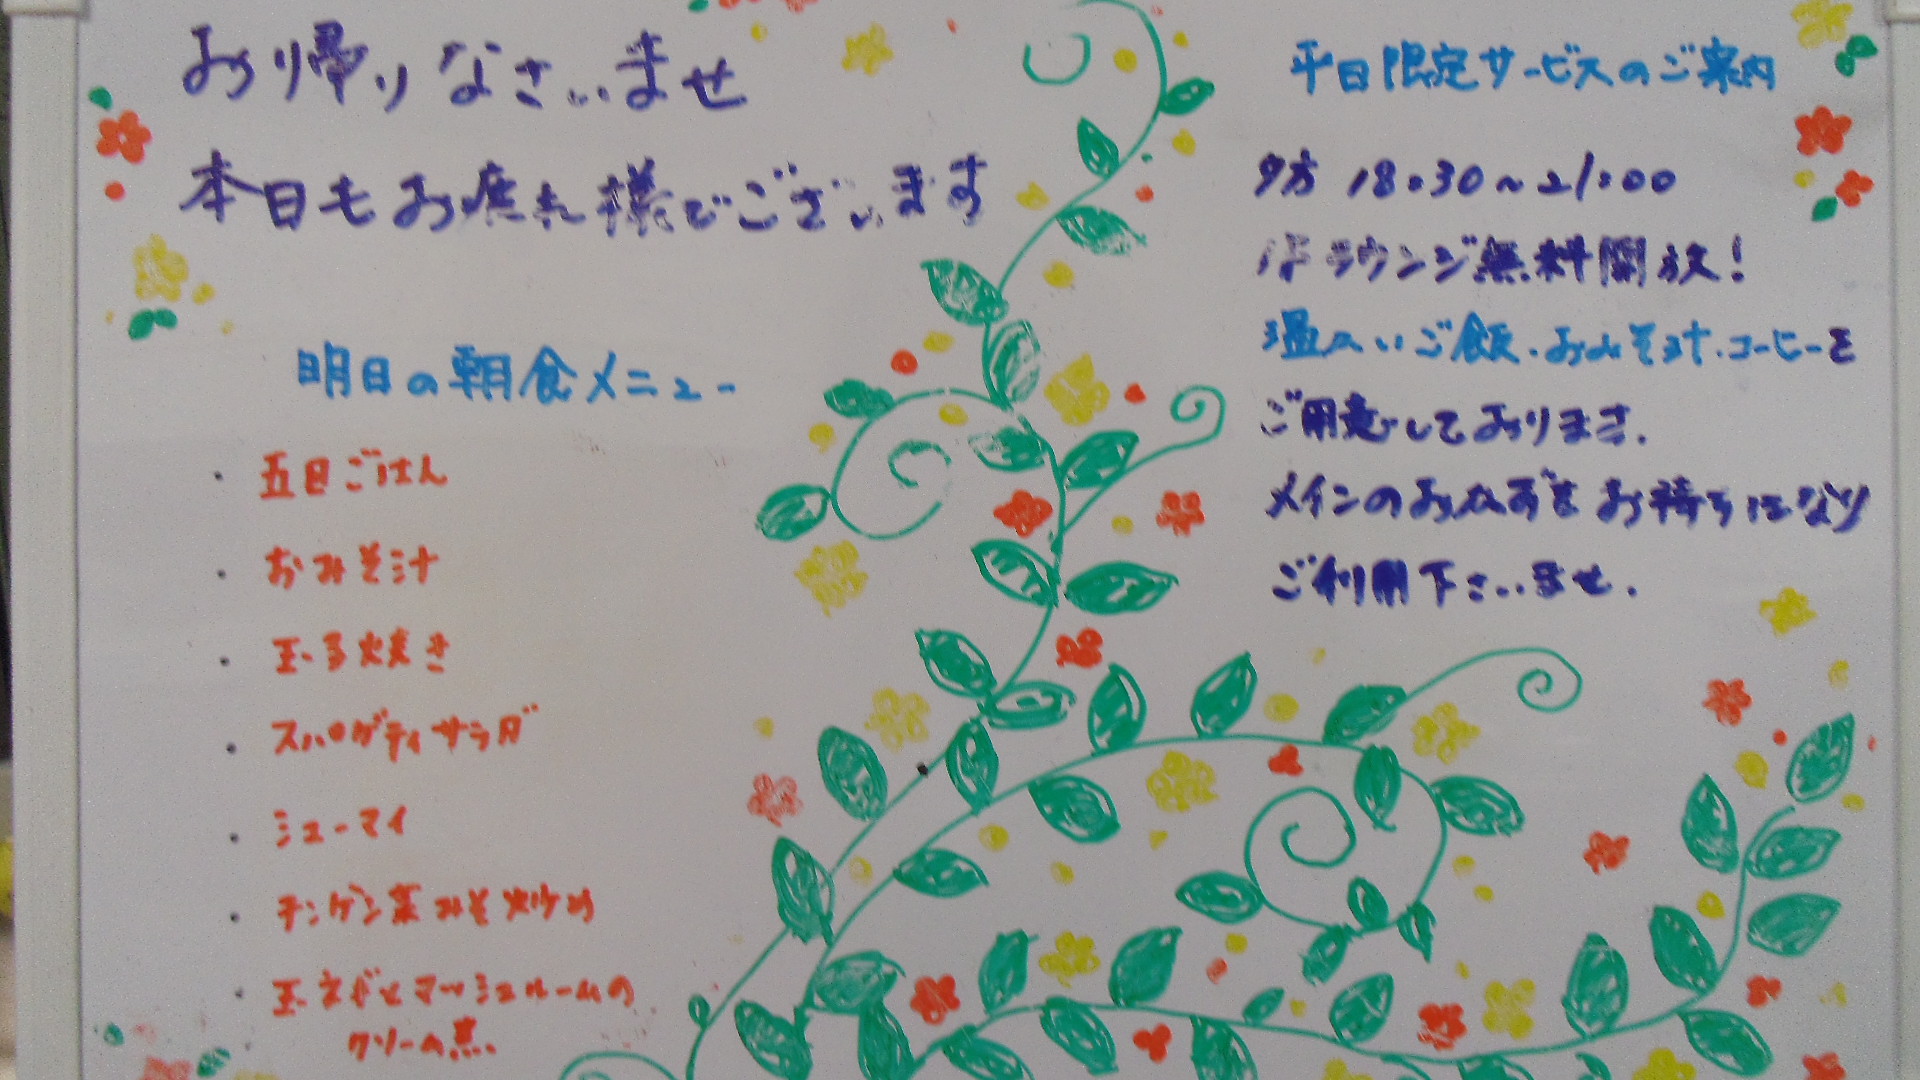 お帰りなさいませ
本日もお疲れ様でございます
明日の朝食メニュー
・五目ごはん
・おみそ汁
・玉子焼き
・スパゲティサラダ
・シューマイ
・チンゲン菜みそ炒め
・玉ネギとマッシュルームの
クリーム煮
平日限定サービスのご案内
夕方 18:30~21:00
1Fラウンジ無料開放!
温かいご飯.おみそ汁.コーヒーを
ご用意しております.
メインのおかずをお持ちになり
ご利用下さいませ.